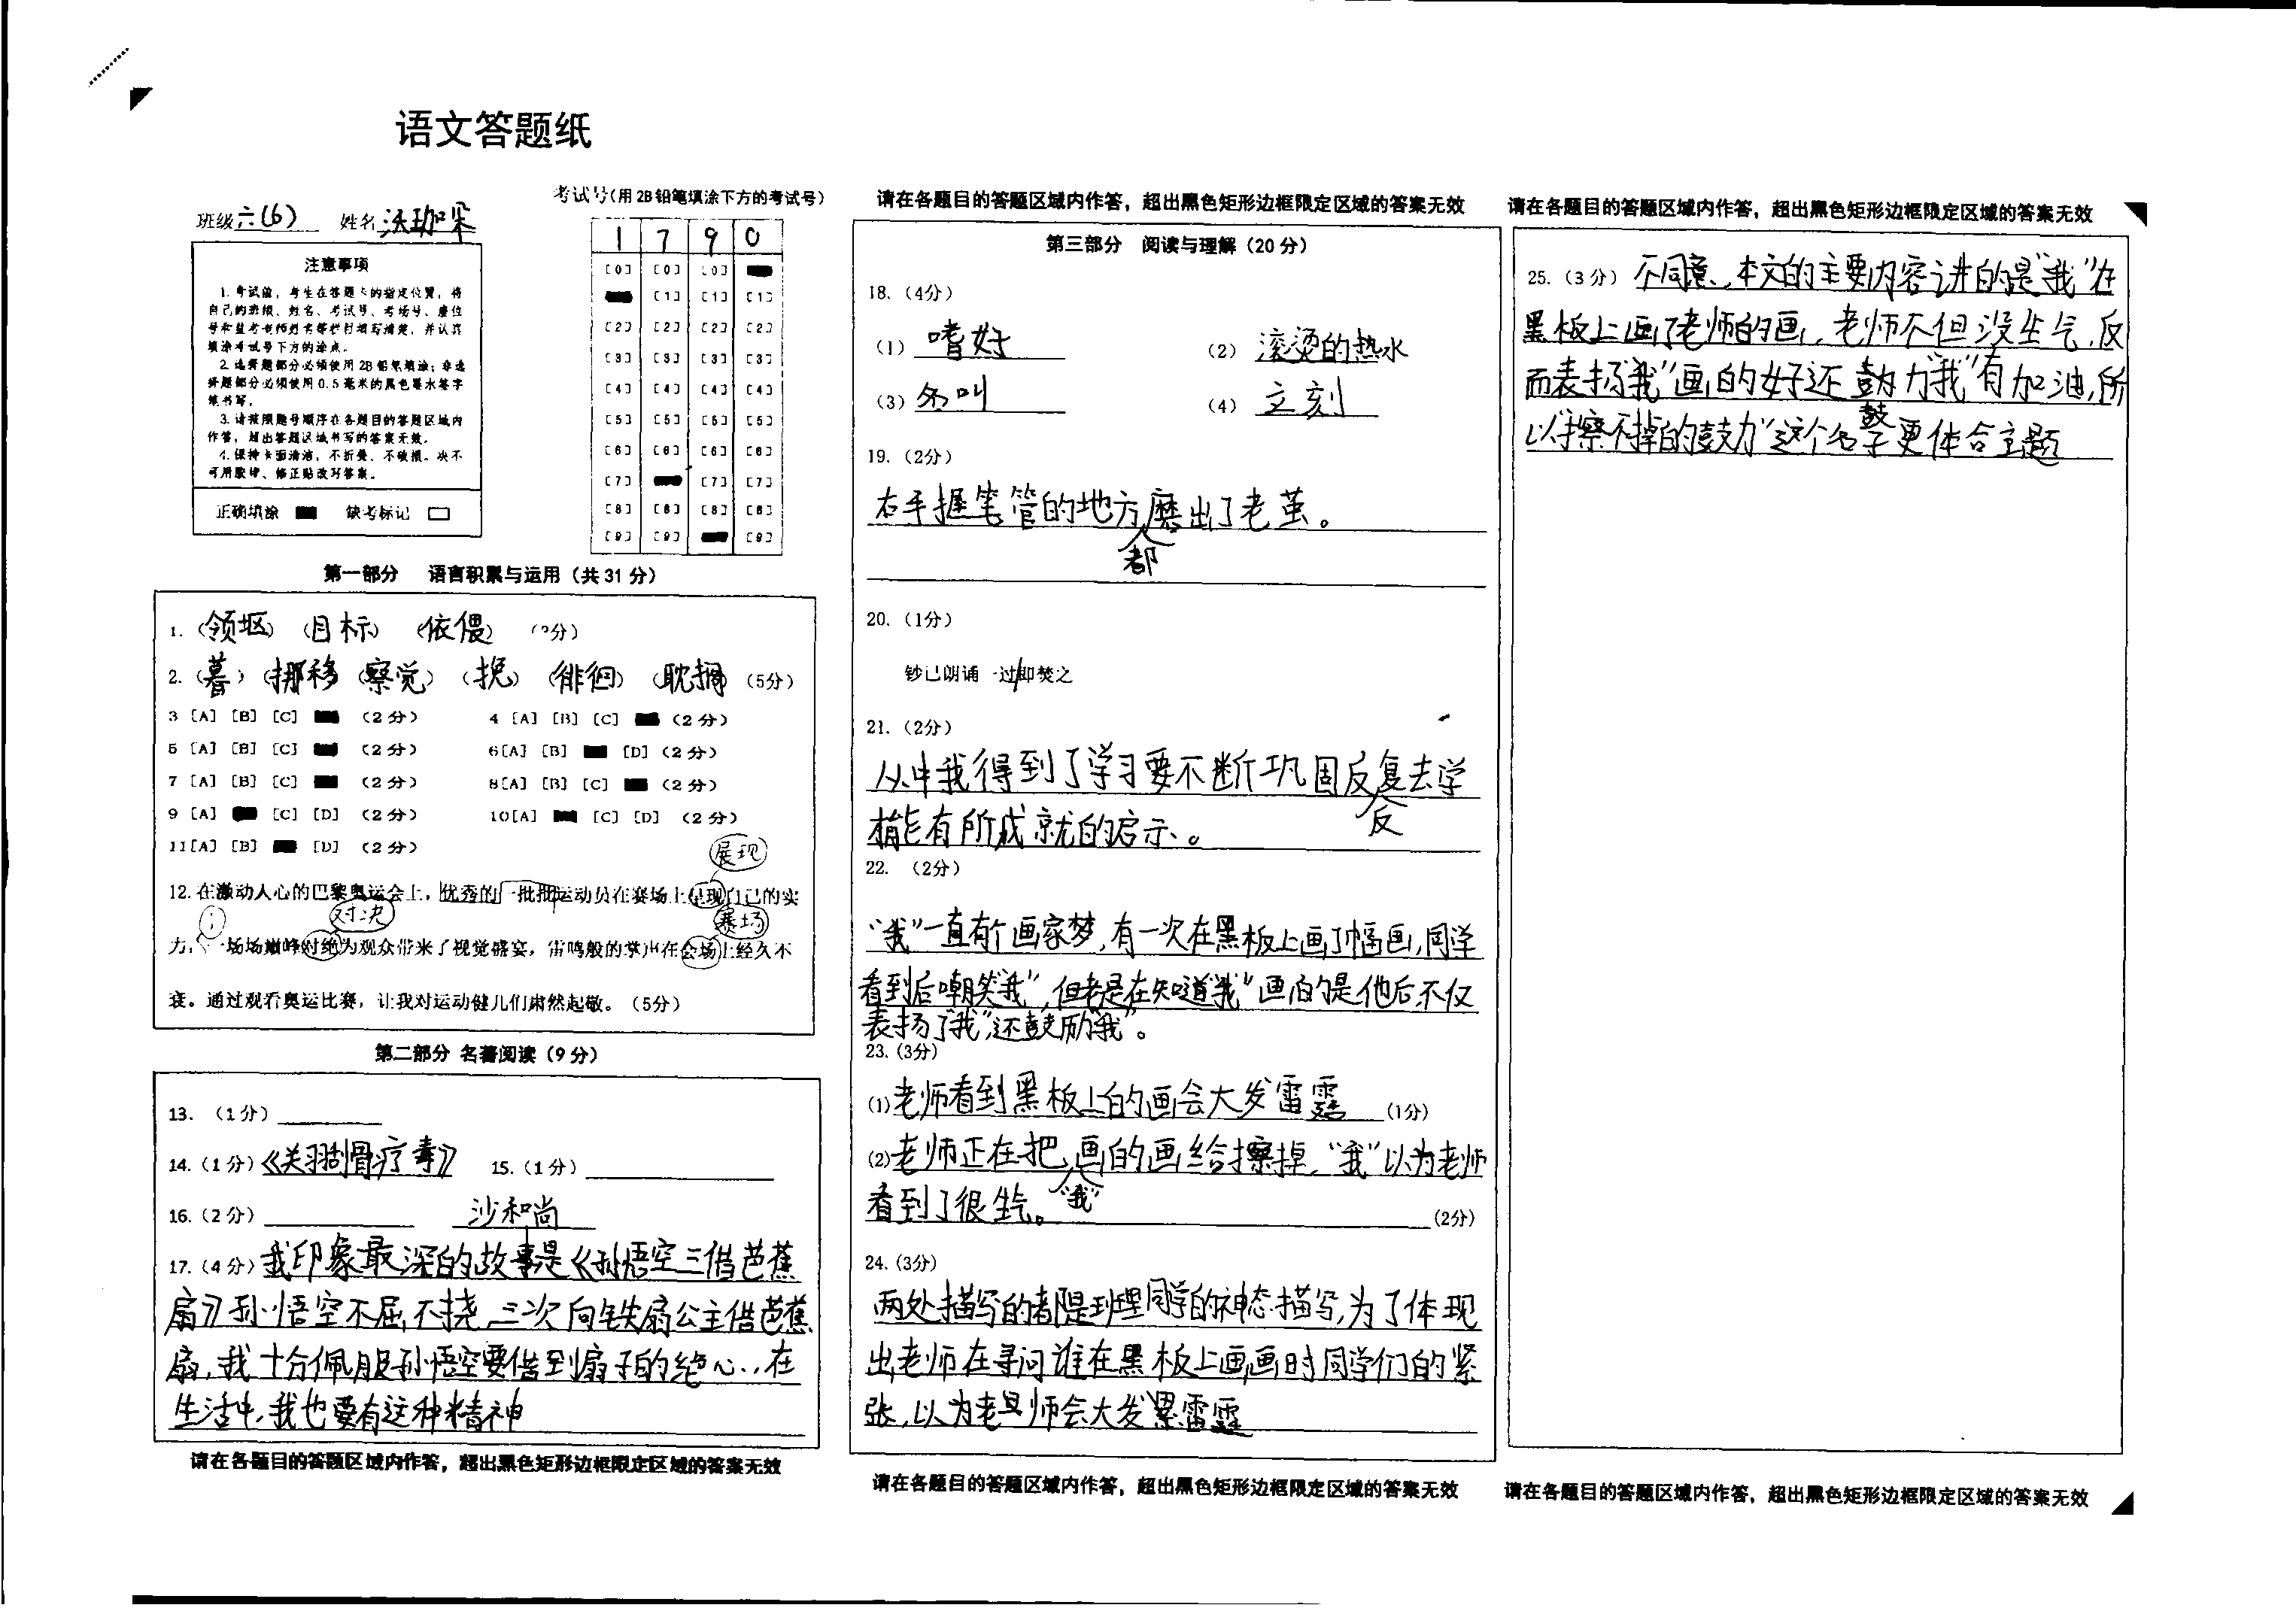 语文答题纸
班级 六(6) 姓名
考试号(用2B铅笔填涂下方的考试号)
1 7 9 0
[0] [0] [0]
[1] [1] [1]
[2] [2] [2] [2]
[3] [3] [3] [3]
[4] [4] [4] [4]
[5] [5] [5] [5]
[6] [6] [6] [6]
[7] [7] [7]
[8] [8] [8] [8]
[9] [9] [9]
注意事项
1. 考试前，考生在答题卡的指定位置，将
自己的班级、姓名、考试号、考场号、座位
号和监考老师姓名等栏目填写清楚，并认真
填涂考试号下方的涂点。
2. 选择题部分必须使用2B铅笔填涂；非选
择题部分必须使用0.5毫米的黑色墨水签字
笔书写。
3. 请按照题号顺序在各题目的答题区域内
作答，超出答题区域书写的答案无效。
4. 保持卡面清洁，不折叠、不破损。决不
可用胶带、修正贴改写答案。
正确填涂 缺考标记
第一部分 语言积累与运用（共31分）
1. (领域) (目标) (依偎) （3分）
2. (暮) (挪移) (察觉) (挽) (徘徊) (耽搁) （5分）
3 [A] [B] [C] （2分） 4 [A] [B] [C] （2分）
5 [A] [B] [C] （2分） 6[A] [B] [D]（2分）
7 [A] [B] [C] （2分） 8[A] [B] [C] （2分）
9 [A] [C] [D] （2分） 10[A] [C] [D] （2分）
11[A] [B] [D] （2分）
展现
12. 在激动人心的巴黎奥运会上，优秀的一批批运动员在赛场上呈现自己的实
； 对决 赛场
力，一场场巅峰对绝为观众带来了视觉盛宴，雷鸣般的掌声在会场上经久不
衰。通过观看奥运比赛，让我对运动健儿们肃然起敬。（5分）
第二部分 名著阅读（9分）
13. （1分）
14.（1分）《关羽刮骨疗毒》 15.（1分）
16.（2分） 沙和尚
17.（4分）我印象最深的故事是《孙悟空三借芭蕉
扇》孙悟空不屈不挠,三次向铁扇公主借芭蕉
扇,我十分佩服孙悟空要借到扇子的绝心,在
生活中,我也要有这种精神
请在各题目的答题区域内作答，超出黑色矩形边框限定区域的答案无效
请在各题目的答题区域内作答，超出黑色矩形边框限定区域的答案无效
第三部分 阅读与理解（20分）
18.（4分）
（1）嗜好 （2）滚烫的热水
（3）名叫 （4）立刻
19.（2分）
右手握笔管的地方磨出了老茧。
都
20.（1分）
钞已朗诵一过/即焚之
21.（2分）
从中我得到了学习要不断巩固反复去学
反
才能有所成就的启示。
22. （2分）
“我”一直有个画家梦,有一次在黑板上画了幅画,同学
看到后嘲笑“我”,但老是在知道“我”画的是他后不仅
表扬了“我”,还鼓励“我”。
23.（3分）
(1)老师看到黑板上的画会大发雷霆（1分）
(2)老师正在把画的画给擦掉,“我”以为老师
“我”
看到了很生气。（2分）
24.（3分）
两处描写的都是班里同学的神态描写,为了体现
出老师在寻问谁在黑板上画画时同学们的紧
张,以为老师会大发雷霆
请在各题目的答题区域内作答，超出黑色矩形边框限定区域的答案无效
请在各题目的答题区域内作答，超出黑色矩形边框限定区域的答案无效
25.（3分）不同意、本文的主要内容讲的是“我”在
黑板上画了老师的画,老师不但没生气,反
而表扬“我”画的好还鼓励“我”有加油,所
以“擦不掉的鼓励”这个名字更体合主题
请在各题目的答题区域内作答，超出黑色矩形边框限定区域的答案无效